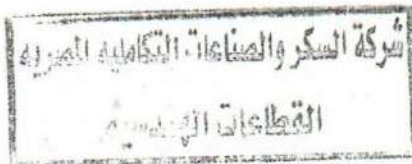 شركة السكر والصناعات التكامليه المصريه
القطاعات الهندسيه